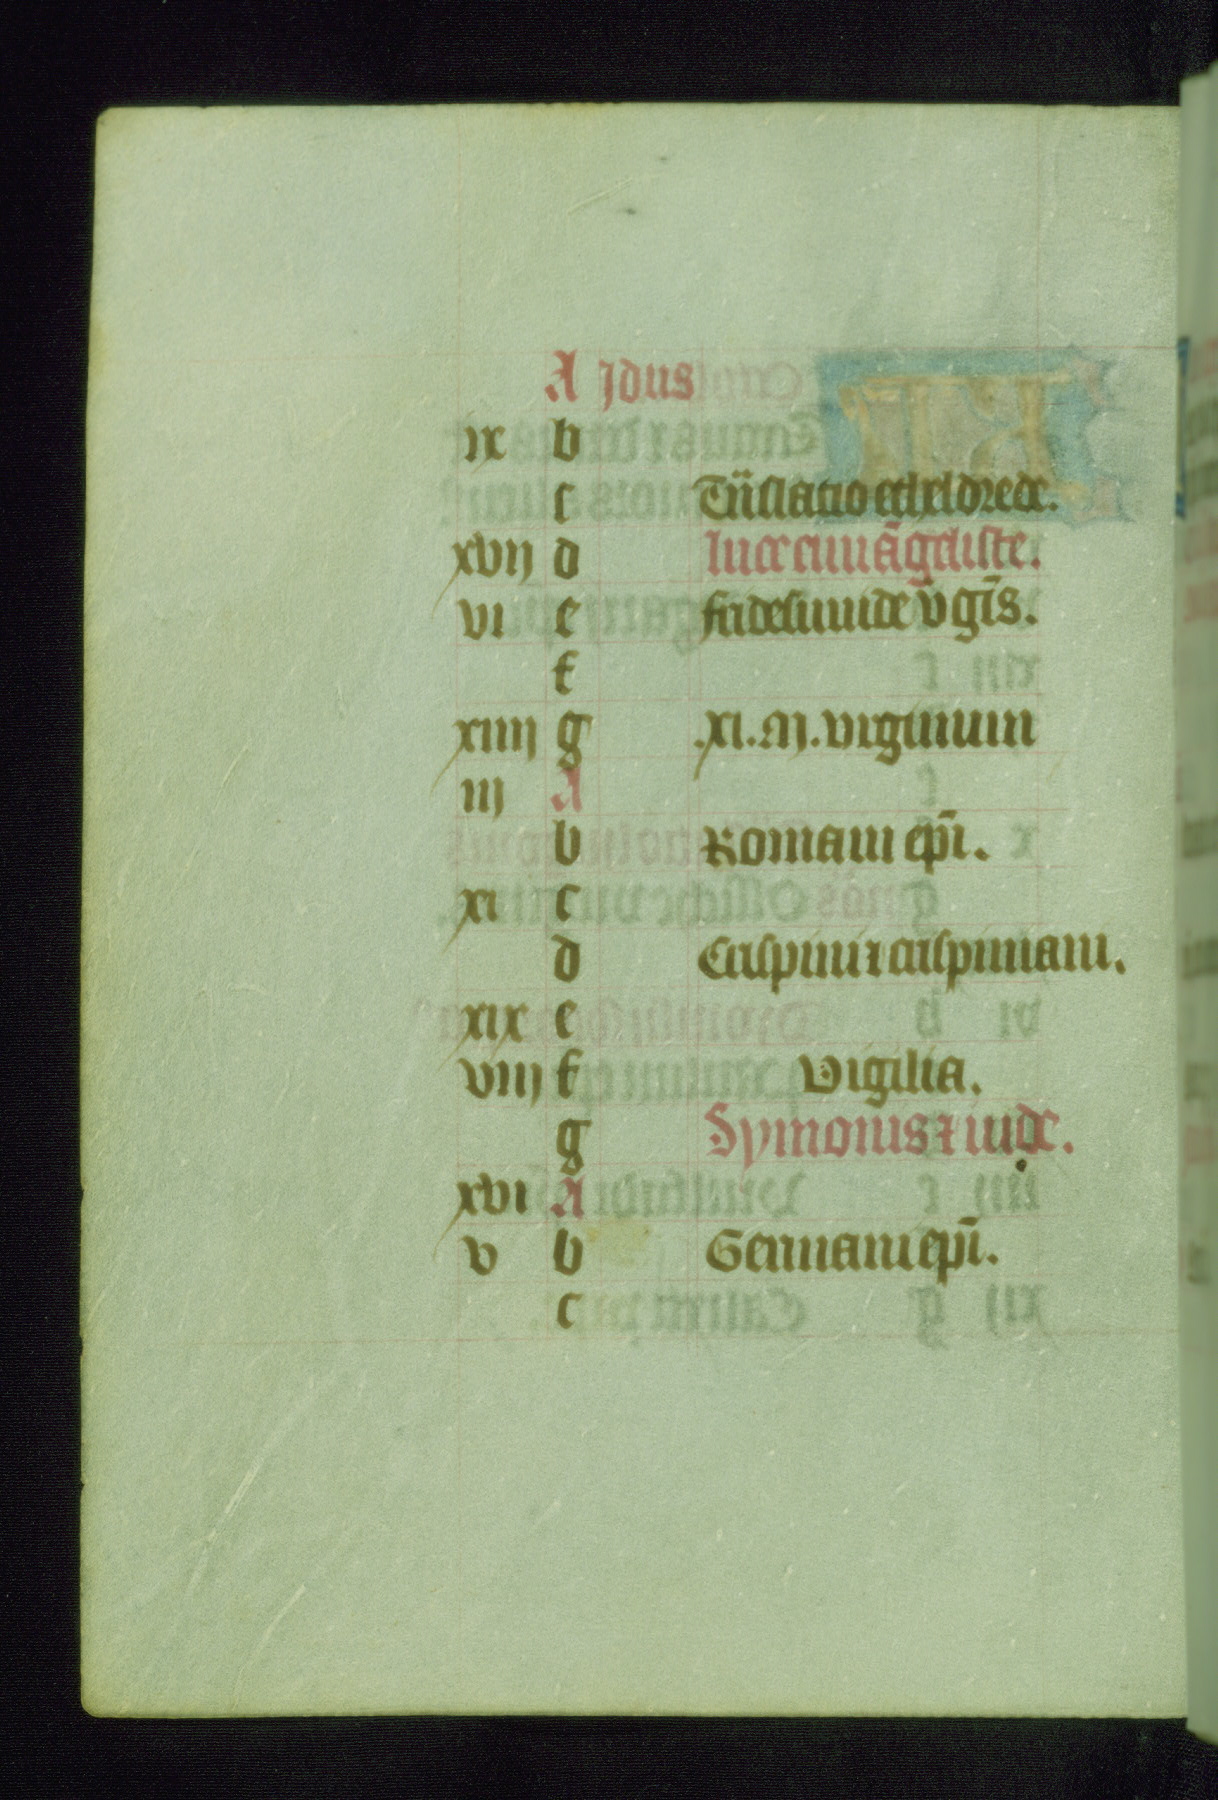 A Jdus
ix b
c Tr̄slatio etheldrede.
xvij d luce euuāgeliste.
vi e fridesuuide v̄gīs.
f
xiiij g .xi. M. virginum
iij A
b Romani ep̄i.
xi c
d Crispini ⁊ crispiniani.
xix e
viij f Vigilia.
g Symonis ⁊ iude.
xvi A
v b Germani ep̄i.
c